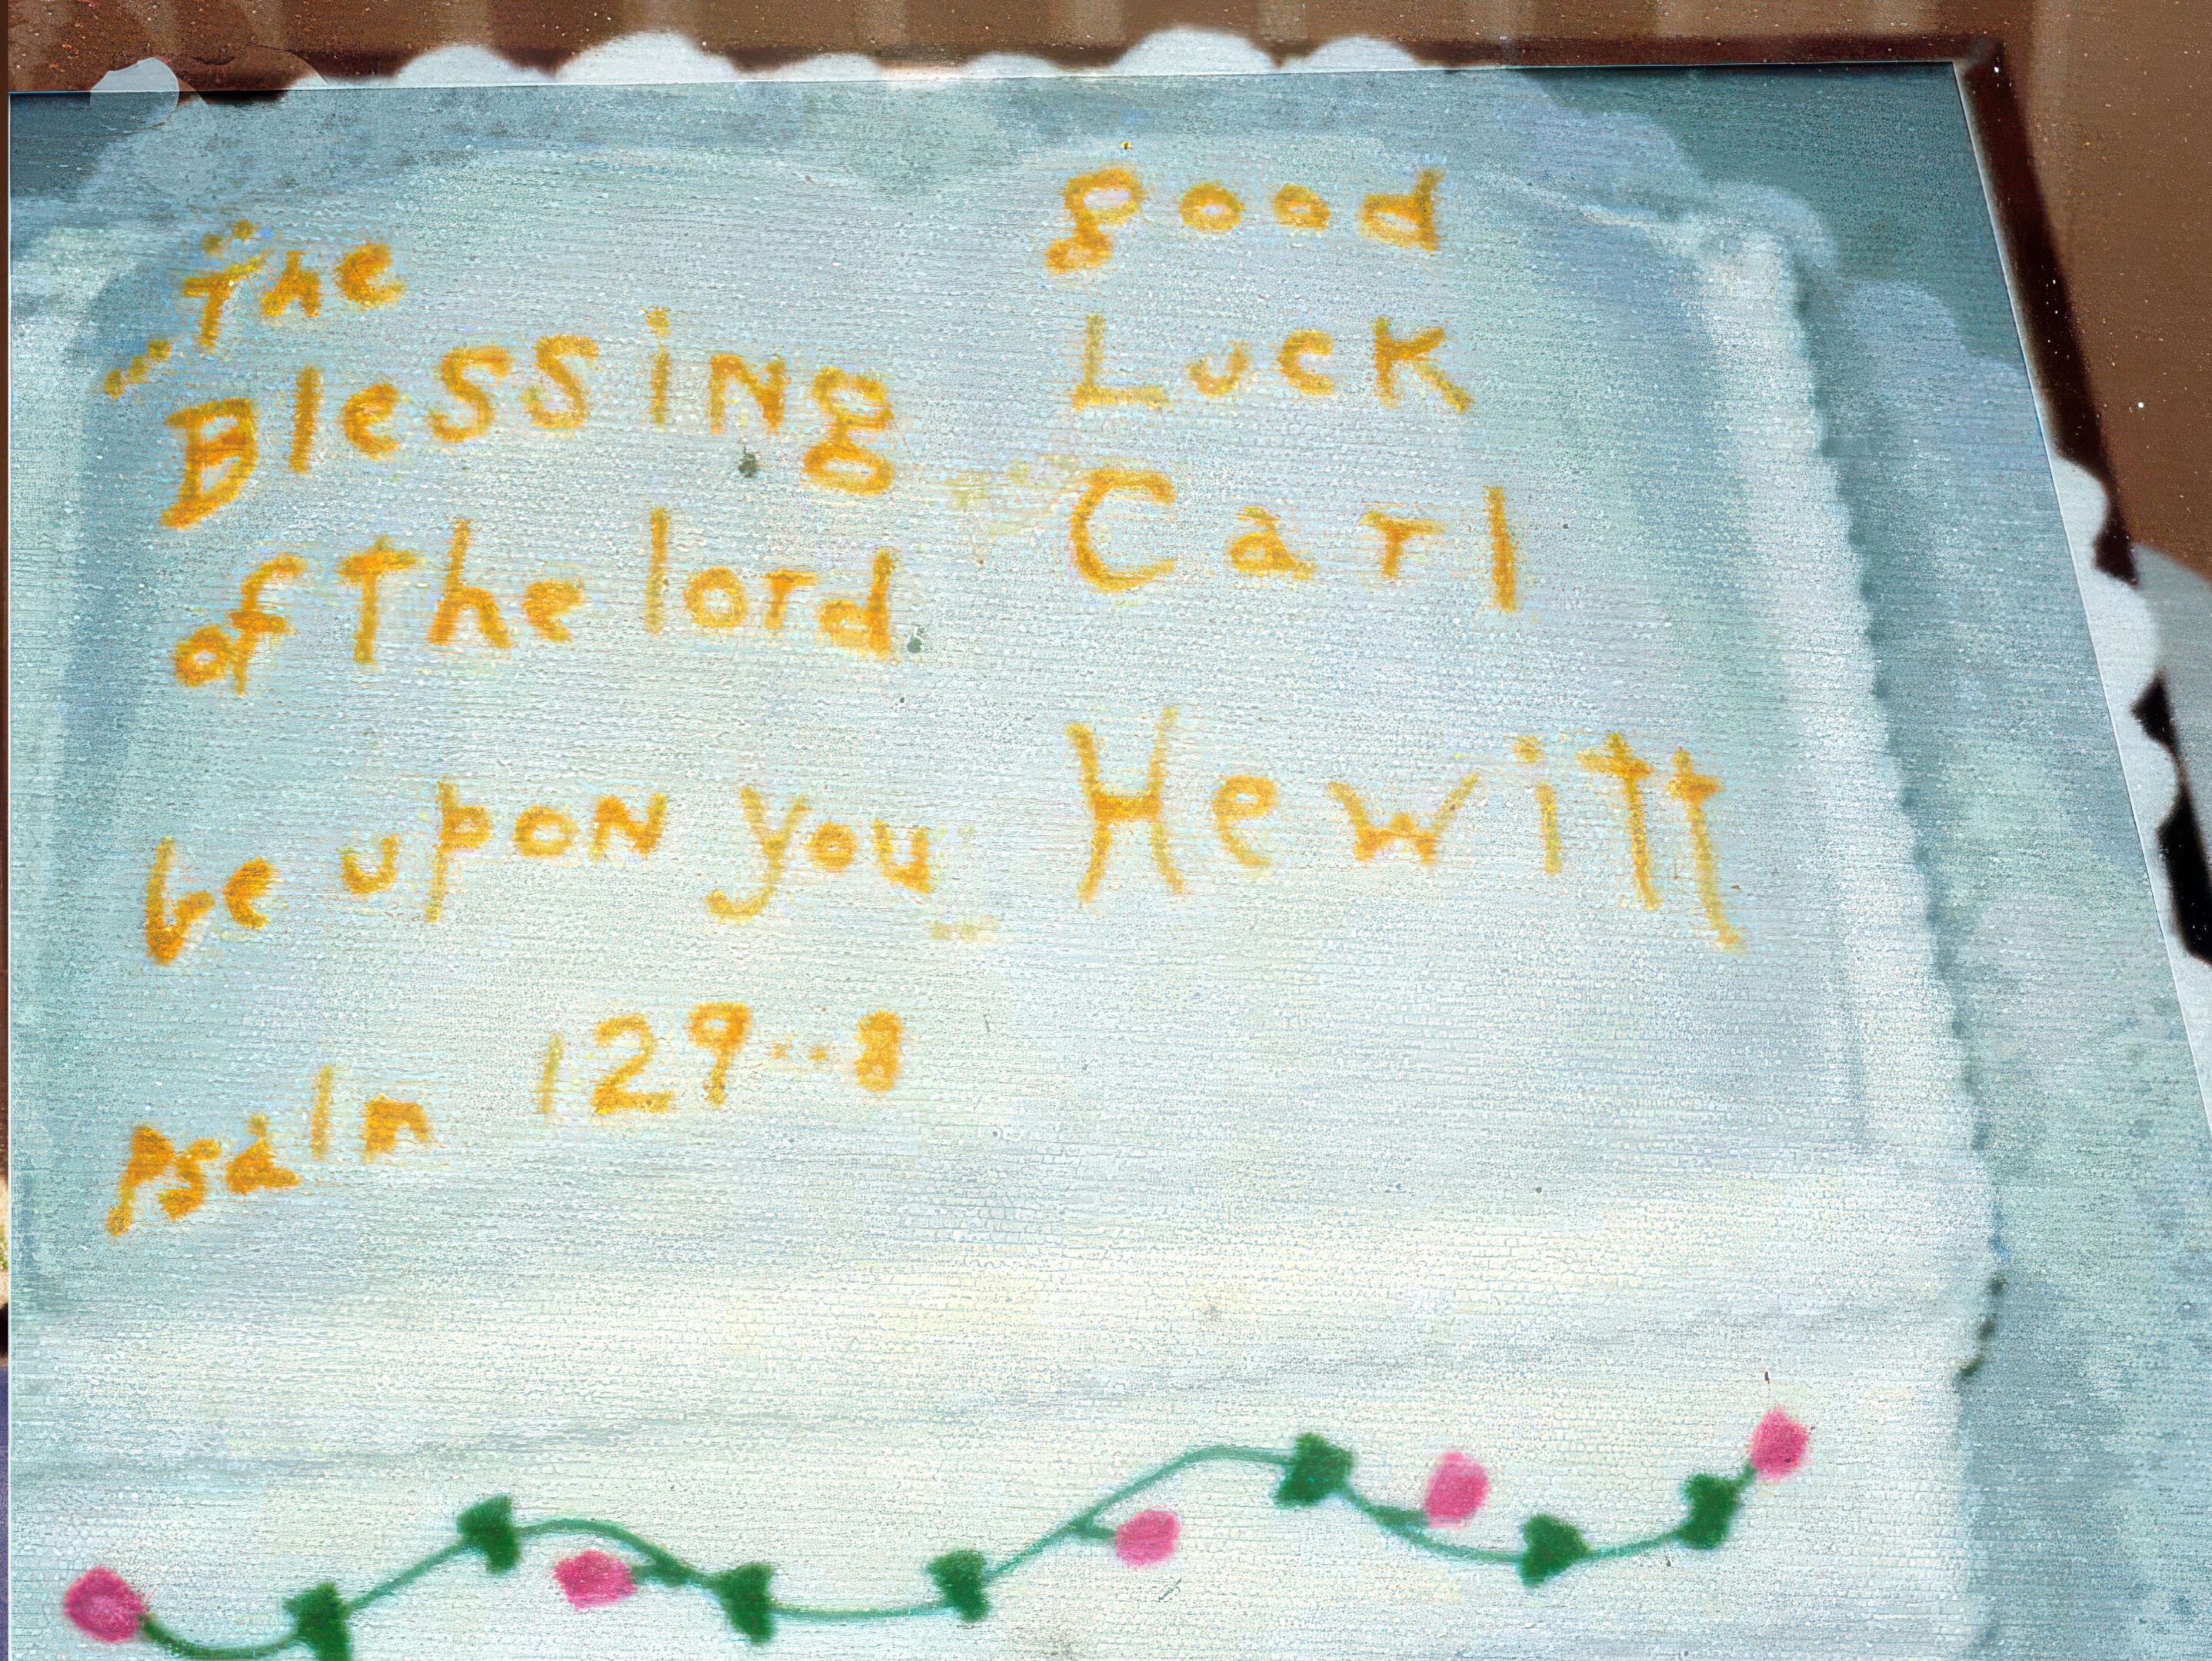 The
Blessing
of The lord
be upon you
Psalm 129--8
good
Luck
Carl
Hewitt